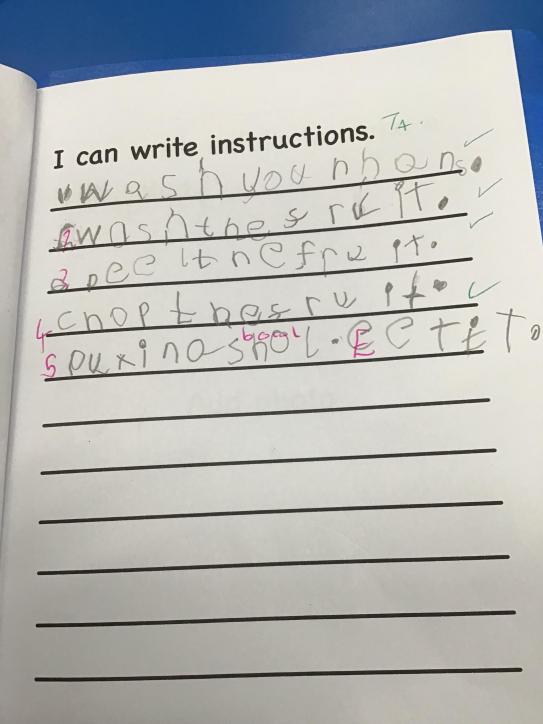 I can write instructions. TA.
1 wash you nhans.
2 wash the sruit.
3 peel the fruit.
4. chop the sruit.
bowl
5 puxinashol. Eetit.